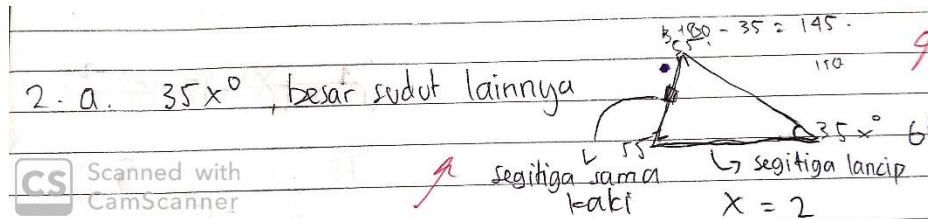 180 - 35 = 145.
110
2. a. 35x°, besar sudut lainnya
55
35x°
segitiga sama kaki
↳ segitiga lancip
x = 2
CS Scanned with CamScanner